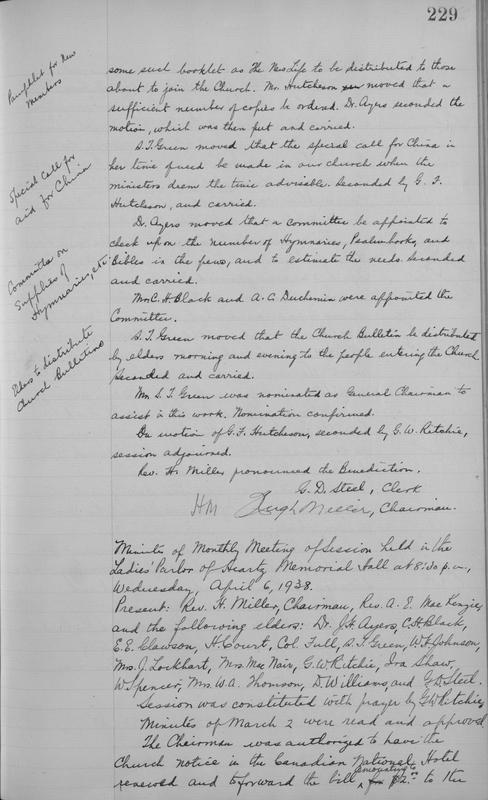 229
Pamphlet for New
Members
some such booklet as the New Life to be distributed to those
about to join the Church. Mr. Hutcheson moved that a
sufficient number of copies be ordered. Dr. Ayers seconded the
motion, which was then put and carried.
S.T. Green moved that the special call for China in
her time of need be made in our church when the
ministers deem the time advisable. Seconded by G. F.
Hutcheson, and carried.
Special Call for
aid for China
Dr. Ayers moved that a committee be appointed to
check upon the number of Hymnaries, Psalmbooks, and
Bibles in the pews, and to estimate the needs. Seconded
and carried.
Committee on
Supplies of
Hymnaries, etc.
Mr. C. H. Black and A. C. Duchemin were appointed the
Committee.
S. T. Green moved that the Church Bulletin be distributed
by elders morning and evening to the people entering the Church
Seconded and carried.
Elders to distribute
Church Bulletins
Mr. S. T. Green was nominated as General Chairman to
assist in this work. Nomination confirmed.
On motion of G. F. Hutcheson, seconded by G. W. Ritchie,
session adjourned.
Rev. H. Miller pronounced the Benediction.
G. D. Steel, Clerk
HM Hugh Miller, Chairman.
Minutes of Monthly Meeting of Session held in the
Ladies' Parlor of Heartz Memorial Hall at 8:30 p.m.,
Wednesday, April 6, 1938.
Present: Rev. H. Miller, Chairman, Rev. A. E. MacKenzie,
and the following elders: Dr. J. H. Ayers, C. H. Black,
E. E. Clawson, H. Court, Col. Full, S. T. Green, W. F. Johnson,
Mrs. J. Lockhart, Mrs. MacNair, G. W. Ritchie, Ira Shaw,
W. Spencer, Mrs. W. A. Thomson, D. Williams, and G. D. Steel.
Session was constituted with prayer by G. W. Ritchie.
Minutes of March 2 were read and approved
The Chairman was authorized to have the
Church notice in the Canadian National Hotel
renewed and to forward the bill, amounting to $2.00 to the